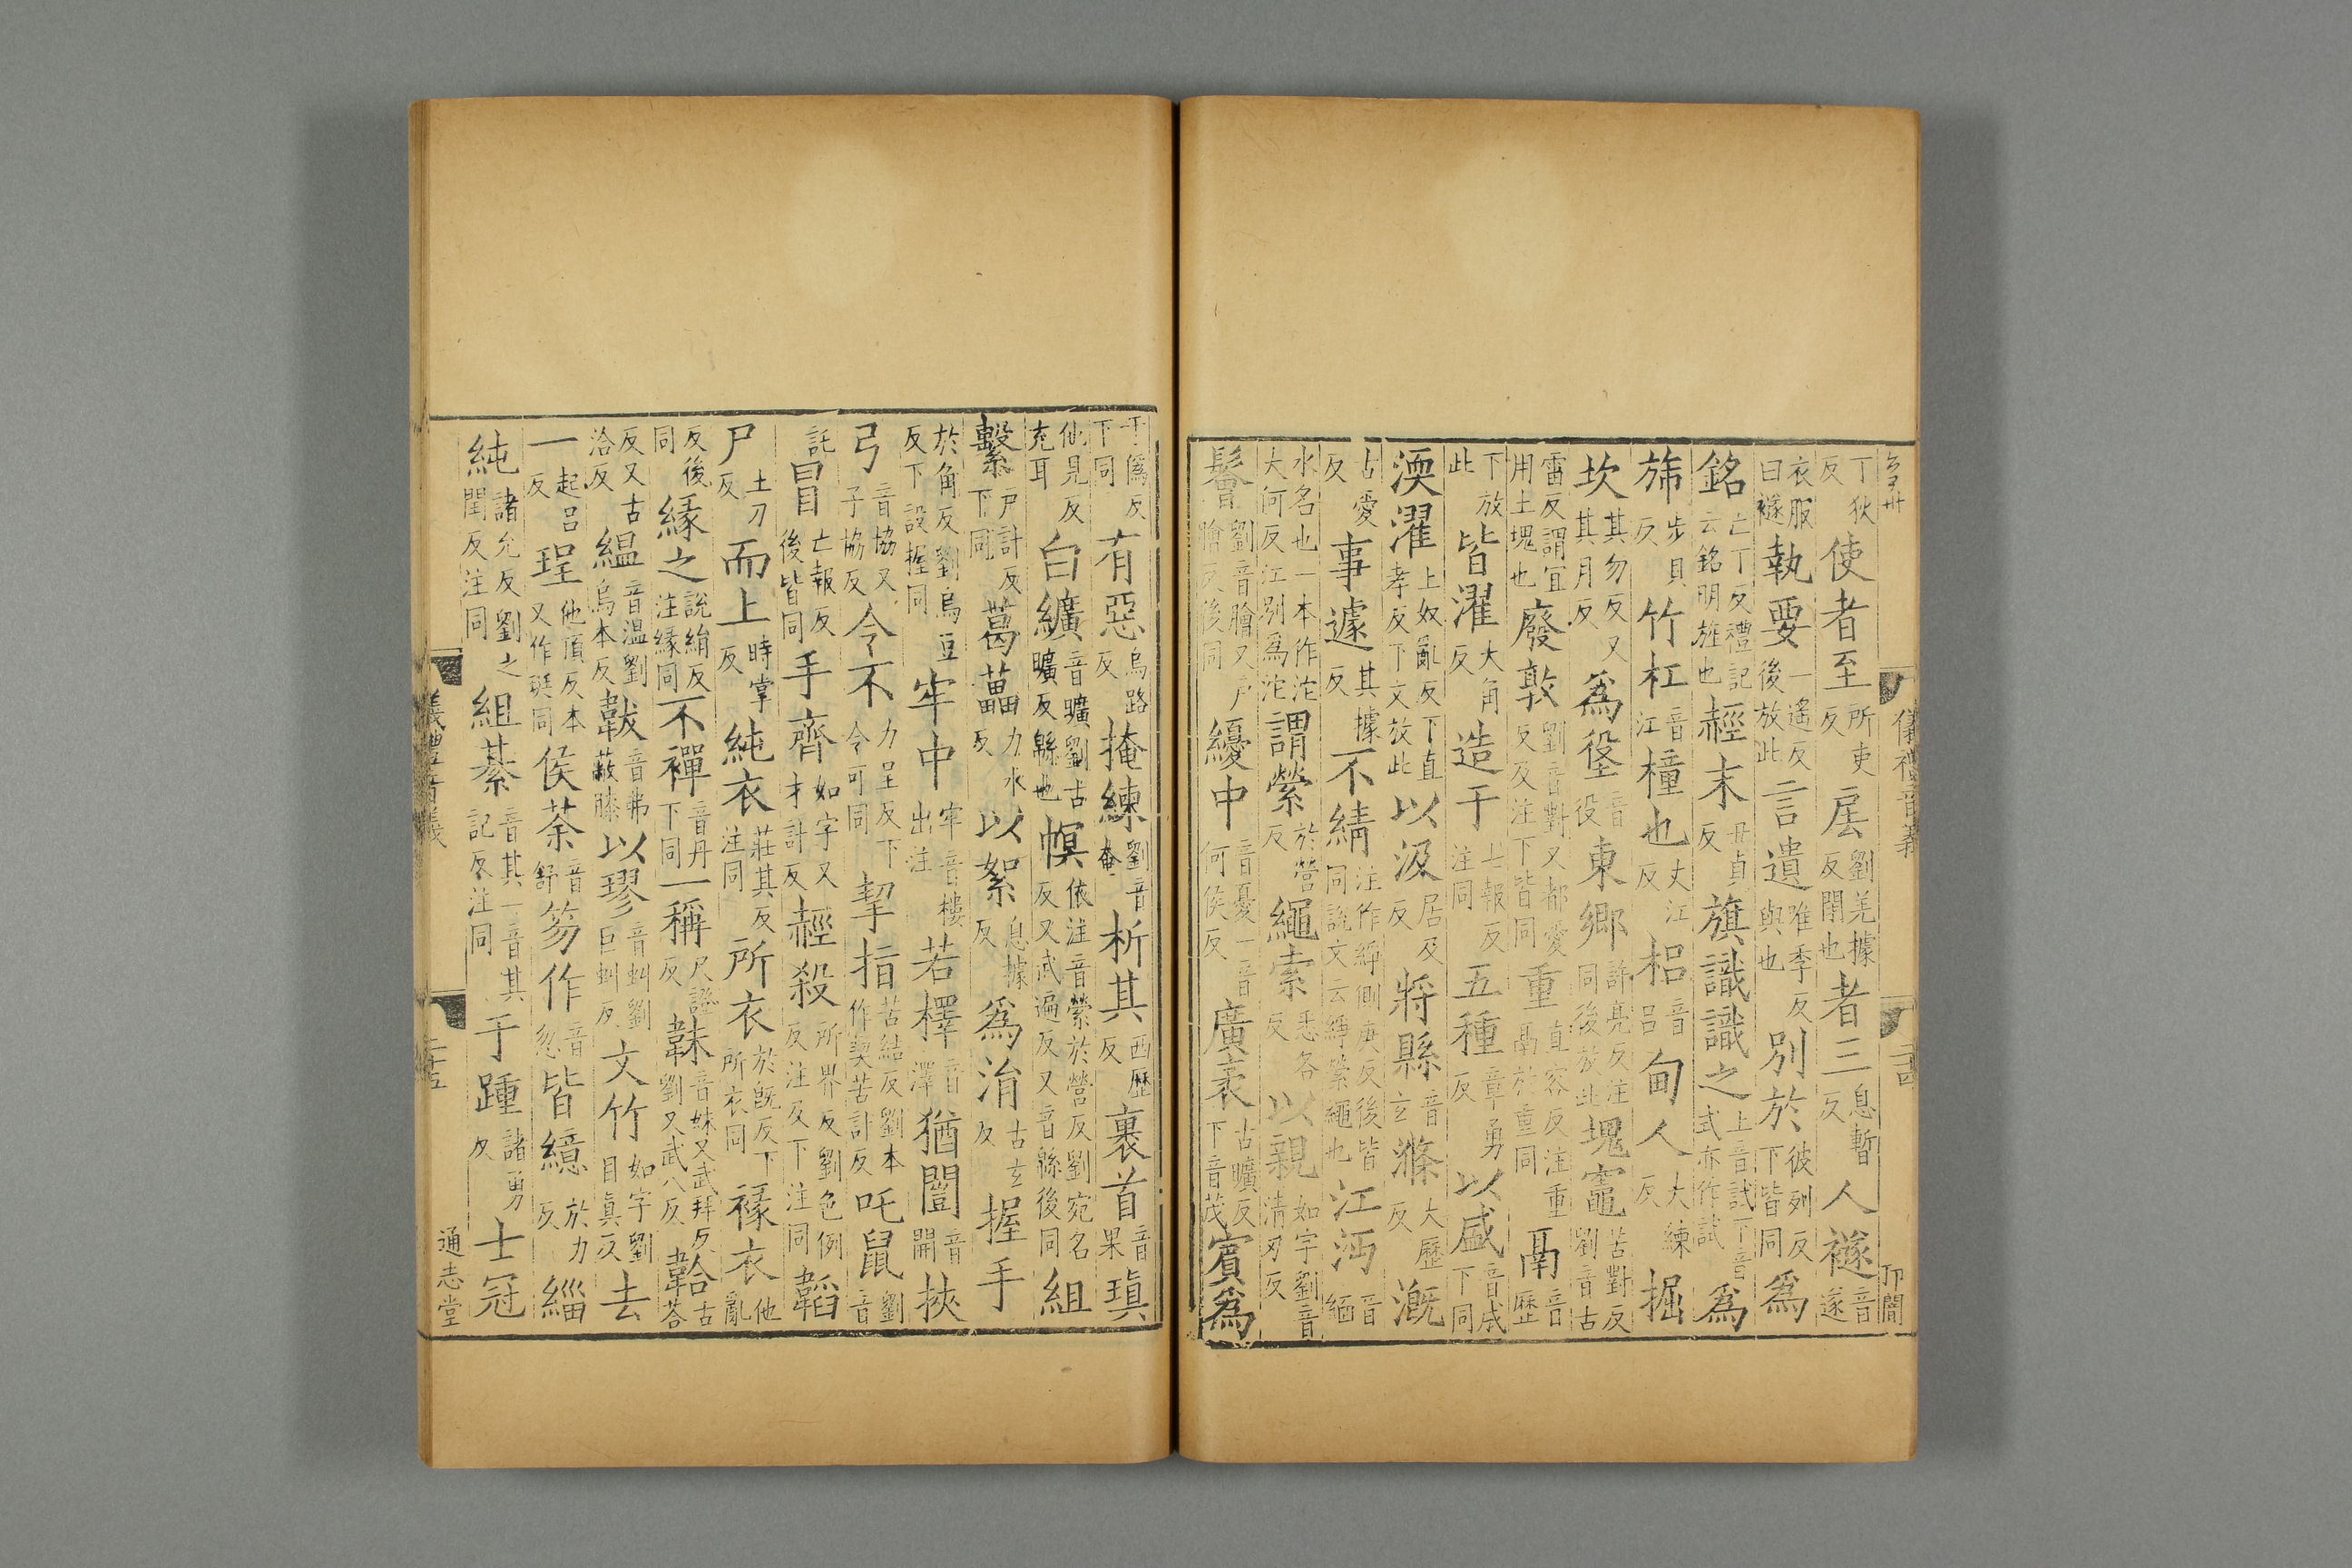 儀禮音義
丁狄反使者至所吏反扂劉羌據反閉也者三息暫反人襚音遂
衣服曰襚執要一遙反後放此言遺唯季反與也別於彼列反下皆同為
銘亡丁反禮記云銘明旌也經末丑貞反旗識識之上音試下音式亦作試為
斾步貝反竹杠音江橦也丈江反梠音呂甸人大練反掘
坎其勿反又其月反為垼音役東鄉許亮反注同後放此塊竈苦對反劉音古
雷反謂冝用土塊也廢敦劉音對又都愛反反注下皆同重直容反注重鬲於重同鬲音歷
下放此皆濯大角反造于七報反注同五種章勇反以盛音成下同
渜濯上奴亂反下直孝反下文放此以汲居及反將縣音玄滌大歷反溉
古愛反事遽其據反不綪注作䋫側庚反後皆同說文云縛縈繩也江沔音緬
水名也一本作沱大何反江別為沱謂縈於營反繩索悉各反以親如字劉音清刃反
鬠劉音膾又戶膾反後同纋中音憂一音何侯反廣袤古曠反下音茂賓為
于僞反下同有惡烏路反掩練劉音奄析其西歷反裹首音果瑱
他見反充耳白纊音曠劉古曠反緜也幎依注音縈於營反劉宛名反又武遍反又音緜後同組
繫戶計反下同葛藟力水反以絮息據反為涓古玄反握手
於角反劉烏豆反下設握同牢中牢音樓出注若檡音澤猶闓音開挾
弓音協又子協反令不力呈反下令可同挈指苦結反劉本作契苦計反吒鼠劉音
託冒亡報反後皆同手齊如字又才計反經殺所界反劉色例反注及下注同韜
土刀反尸而上時掌反純衣莊其反注同所衣於旣反下所衣同褖衣他亂
反後同緣之說絹反注緣同不襌音丹下同一稱尺證反韎音妹又武拜反劉又武八反韐古荅
反又古洽反緼音溫劉烏本反韍音弗蔽膝以璆音虯劉巨虯反文竹如字劉目真反去
一起呂反珵他頂反本又作珽同侯荼音舒笏作音忽皆繶於力反緇
純諸允反劉之閏反注同組綦音其一音其記反注同于踵諸勇反士冠
儀禮音義
二十五
通志堂